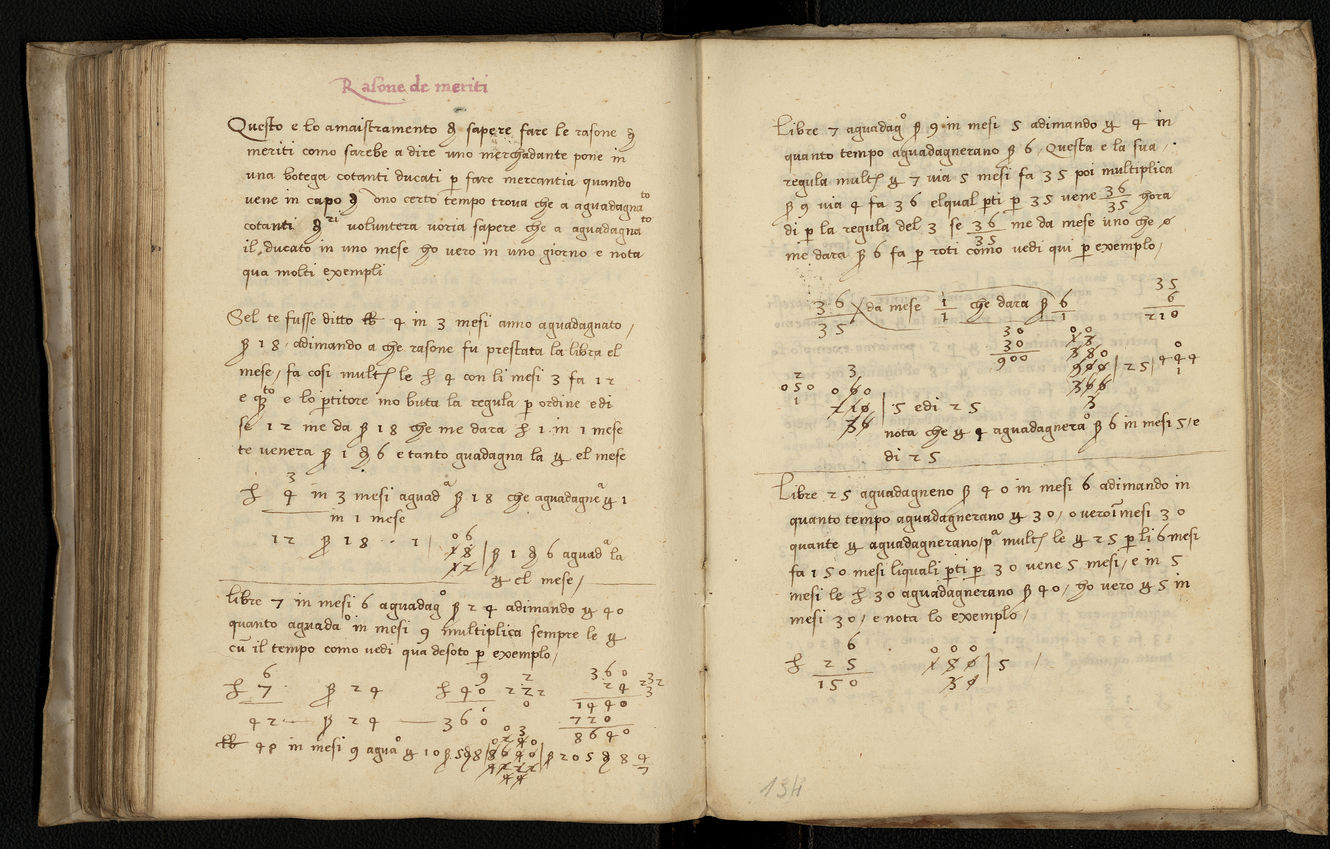 Rasone de meriti
Questo e lo amaistramento d sapere fare le rasone d
meriti como sarebe a dire uno merchadante pone in
una botega cotanti ducati p fare mercantia quando
vene in capo d uno certo tempo trova che a aguadagnato
cotanti dri voluntera voria sapere che a aguadagnato
il ducato in uno mese ho vero in uno giorno e nota
qua molti exempli
Sel te fusse ditto lb 4 in 3 mesi anno aguadagnato /
β 18 · adimando a che rasone fu prestata la libra el
mese / fa cosi mult le £ 4 con li mesi 3 fa 12
e qsto e lo ptitore mo buta la regula p ordine e di
se 12 me da β 18 che me dara £ 1 in 1 mese
te venera β 1 d 6 e tanto guadagna la £ el mese
3
£ 4 in 3 mesi aguada β 18 che aguadagnea £ 1
in 1 mese
12 β 18 · · 1 | 06
18 | β 1 d 6 aguada la
12 £ el mese /
Libre 7 in mesi 6 aguadago β 24 adimando £ 40
quanto aguadao in mesi 9 multiplica sempre le £
cu il tempo como vedi qua desoto p exemplo /
6 9 2 360
£ 7 β 24 £ 40 222 24 232
0 1440 3
42 — β 24 — 360 720
03 8640
0240
lb 40 in mesi 9 aguao £ 10 β 5 d 8 | 8640 | β 205 d 8 4/7
4222
44
Libre 7 aguadago β 9 in mesi 5 adimando £ 4 in
quanto tempo aguadagnerano β 6 / Questa e la sua / ·
regula mult £ 7 via 5 mesi fa 35 poi multiplica
β 9 via 4 fa 36 elqual pti p 35 vene 36/35 hora
di p la regula del 3 se 36/35 me da mese uno che
me dara β 6 fa p roti como vedi qui p exemplo /
35
36 da mese 1 che dara β 6 6
35 1 1 210
30 00
30 13
900 380 0
2 3 900 | 25 | 444
050 060 366 1
1 210 | 5 e di 25 3
36
nota che £ 4 aguadagnerao β 6 in mesi 5 / e
di 25
Libre 25 aguadagneno β 40 in mesi 6 adimando in
quanto tempo aguadagnerano £ 30 / o vero i mesi 30
quante £ aguadagnerano / pa mult le £ 25 p li 6 mesi
fa 150 mesi liquali pti p 30 vene 5 mesi / e in 5
mesi le £ 30 aguadagnerano β 40 / ho vero £ 5 in
mesi 30 / e nota lo exemplo /
6 000
£ 25 150 | 5 /
150 30
134